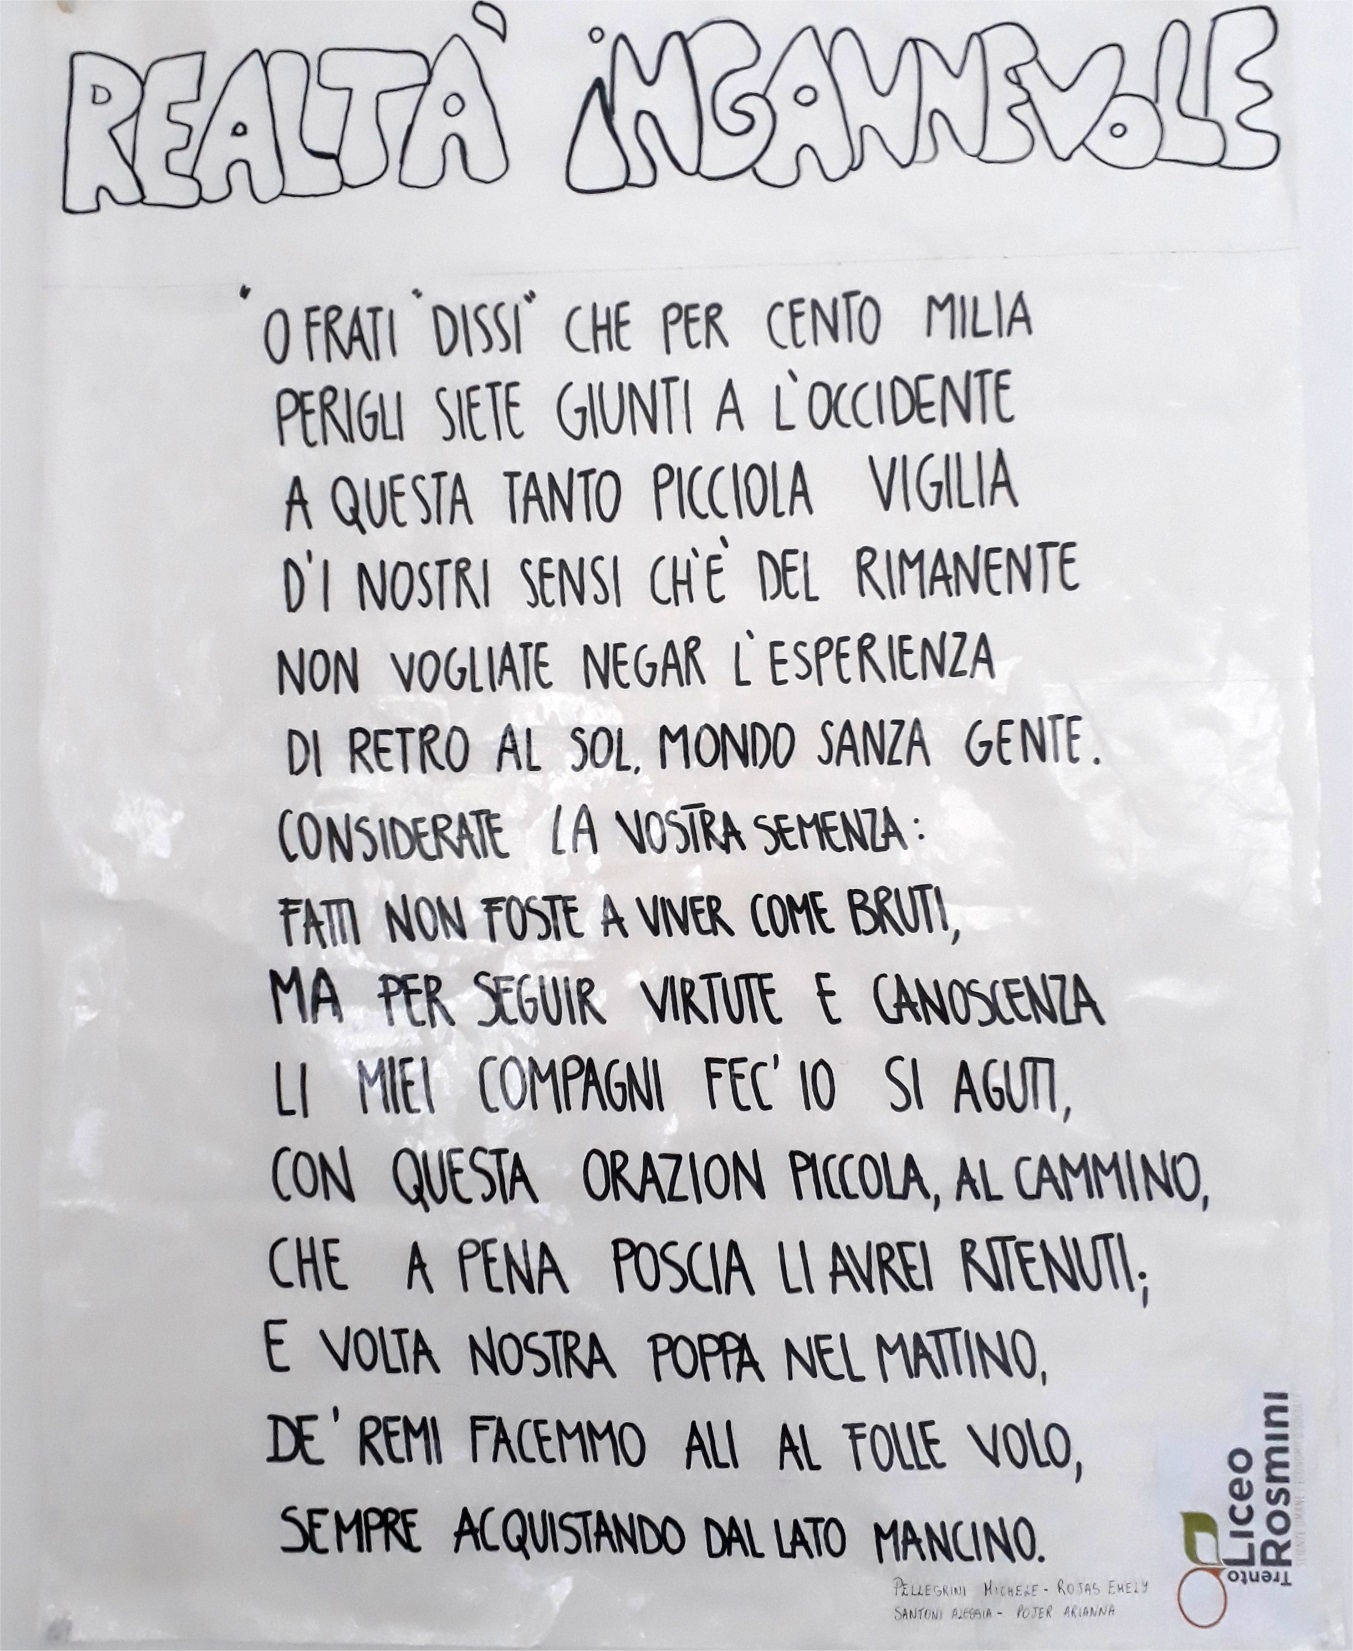 REALTÀ iNGANNEVOLE
"O FRATI "DISSI" CHE PER CENTO MILIA
PERIGLI SIETE GIUNTI A L'OCCIDENTE
A QUESTA TANTO PICCIOLA VIGILIA
D'I NOSTRI SENSI CH'È DEL RIMANENTE
NON VOGLIATE NEGAR L'ESPERIENZA
DI RETRO AL SOL, MONDO SANZA GENTE.
CONSIDERATE LA VOSTRA SEMENZA:
FATTI NON FOSTE A VIVER COME BRUTI,
MA PER SEGUIR VIRTUTE E CANOSCENZA
LI MIEI COMPAGNI FEC' IO SI AGUTI,
CON QUESTA ORAZION PICCOLA, AL CAMMINO,
CHE A PENA POSCIA LI AVREI RITENUTI;
E VOLTA NOSTRA POPPA NEL MATTINO,
DE' REMI FACEMMO ALI AL FOLLE VOLO,
SEMPRE ACQUISTANDO DAL LATO MANCINO.
PELLEGRINI MICHELE - ROJAS EMELY
SANTONI ALESSIA - POJER ARIANNA
Trento
Liceo
Rosmini